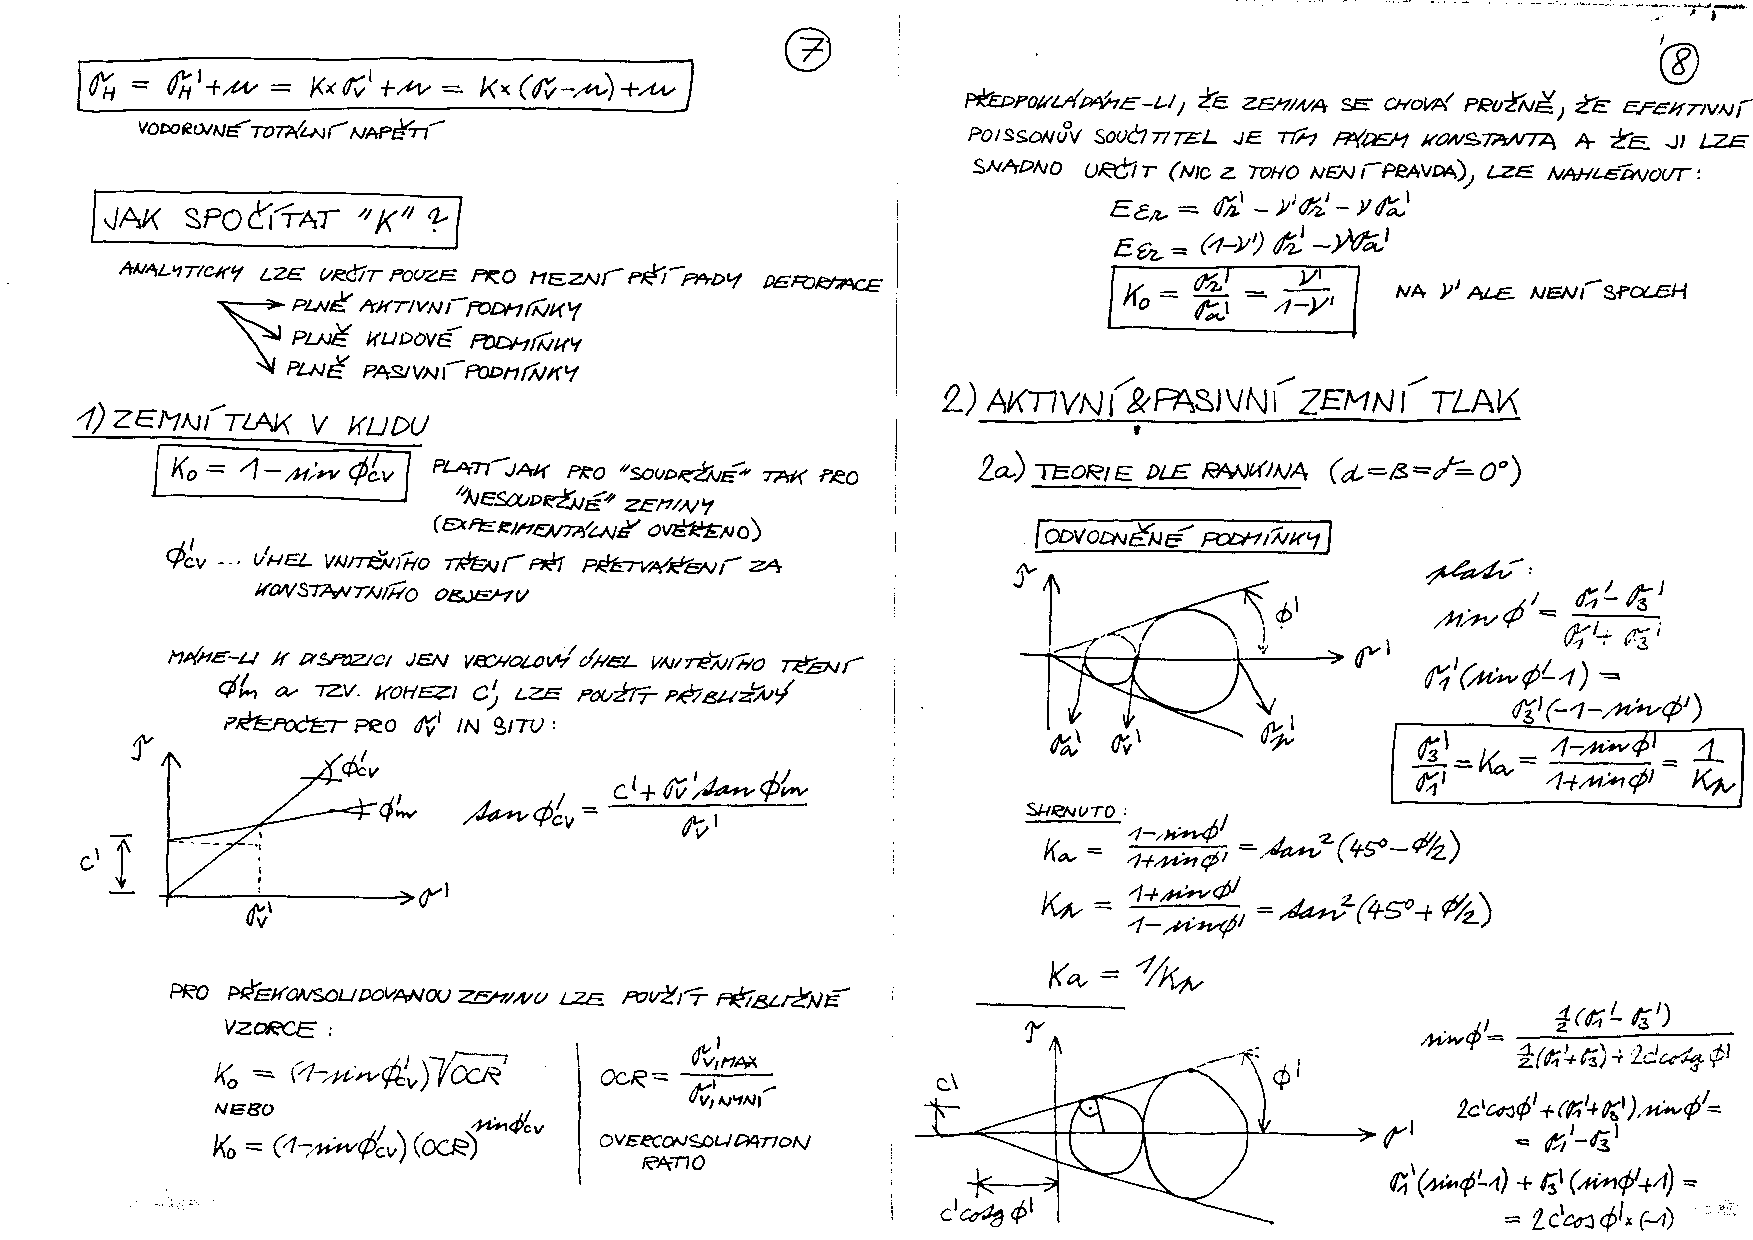 7
σH = σH' + u = K×σv' + u = K×(σv-u)+u
VODOROVNÉ TOTÁLNÍ NAPĚTÍ
JAK SPOČÍTAT "K"?
ANALYTICKY LZE URČIT POUZE PRO MEZNÍ PŘÍPADY DEFORMACE
→ PLNĚ AKTIVNÍ PODMÍNKY
→ PLNĚ KLIDOVÉ PODMÍNKY
→ PLNĚ PASIVNÍ PODMÍNKY
1) ZEMNÍ TLAK V KLIDU
K0 = 1 - sin ϕ'cv
PLATÍ JAK PRO "SOUDRŽNÉ" TAK PRO
"NESOUDRŽNÉ" ZEMINY
(EXPERIMENTÁLNĚ OVĚŘENO)
ϕ'cv ... ÚHEL VNITŘNÍHO TŘENÍ PŘI PŘETVÁŘENÍ ZA
KONSTANTNÍHO OBJEMU
MÁME-LI K DISPOZICI JEN VRCHOLOVÝ ÚHEL VNITŘNÍHO TŘENÍ
ϕ'm a TZV. KOHEZI C', LZE POUŽÍT PŘIBLIŽNÝ
PŘEPOČET PRO σv' IN SITU:
τ
ϕ'cv
ϕ'm
c'
σv'
σ'
tan ϕ'cv = (c' + σv' tan ϕ'm) / σv'
PRO PŘEKONSOLIDOVANOU ZEMINU LZE POUŽÍT PŘIBLIŽNÉ
VZORCE:
K0 = (1-sin ϕ'cv) √OCR
NEBO
K0 = (1-sin ϕ'cv)(OCR)^sin ϕ'cv
OCR = σ'v,MAX / σ'v,NYNÍ
OVERCONSOLIDATION
RATIO
8
PŘEDPOKLÁDÁME-LI, ŽE ZEMINA SE CHOVÁ PRUŽNĚ, ŽE EFEKTIVNÍ
POISSONŮV SOUČITITEL JE TÍM PÁDEM KONSTANTA A ŽE JI LZE
SNADNO URČIT (NIC Z TOHO NENÍ PRAVDA), LZE NAHLÉDNOUT:
Eεr = σr' - ν'σr' - νσa'
Eεr = (1-ν') σr' - ν'σa'
K0 = σr'/σa' = ν'/(1-ν')
NA ν' ALE NENÍ SPOLEH
2) AKTIVNÍ & PASIVNÍ ZEMNÍ TLAK
2a) TEORIE DLE RANKINA (α=β=δ=0°)
ODVODNĚNÉ PODMÍNKY
τ
ϕ'
σ'
σa'
σv'
σp'
platí:
sin ϕ' = (σ1' - σ3') / (σ1' + σ3')
σ1'(sin ϕ'-1) =
σ3'(-1-sin ϕ')
σ3'/σ1' = Ka = (1-sin ϕ')/(1+sin ϕ') = 1/Kp
SHRNUTO:
Ka = (1-sin ϕ')/(1+sin ϕ') = tan²(45°-ϕ'/2)
Kp = (1+sin ϕ')/(1-sin ϕ') = tan²(45°+ϕ'/2)
Ka = 1/Kp
τ
c'
ϕ'
σ'
c'cotg ϕ'
sin ϕ' = ½(σ1'-σ3') / (½(σ1'+σ3')+2c'cotg ϕ')
2c'cos ϕ' + (σ1'+σ3').sin ϕ' =
= σ1'-σ3'
σ1'(sin ϕ'-1) + σ3'(sin ϕ'+1) =
= 2c'cos ϕ' × (-1)